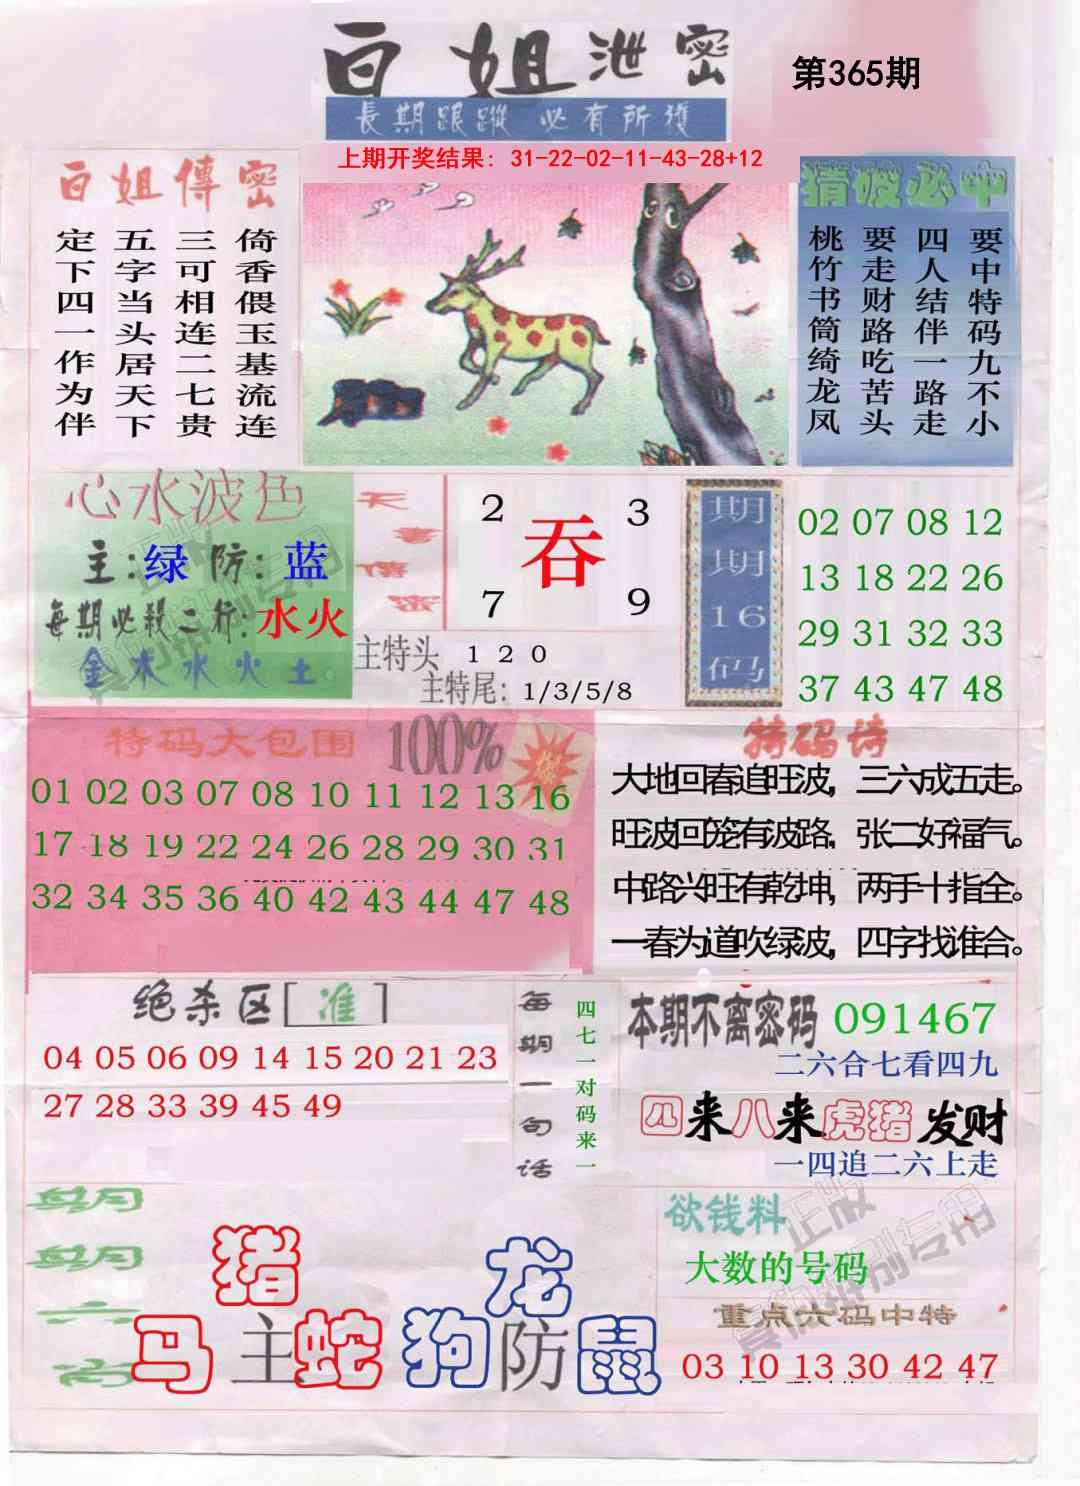 白姐泄密
第365期
長期跟蹤 必有所獲
上期开奖结果: 31-22-02-11-43-28+12
白姐傳密
倚香偎玉基流连
三可相连二七贵
五字当头居天下
定下四一作为伴
猜破必中
要中特码九不小
四人结伴一路走
要走财路吃苦头
桃竹书筒绮龙凤
心水波色
主:绿 防:蓝
每期必殺二行:水火
金木水火土
天書傳密
2 3
吞
7 9
主特头 1 2 0
主特尾: 1/3/5/8
期期16码
02 07 08 12
13 18 22 26
29 31 32 33
37 43 47 48
特码大包围 100%
01 02 03 07 08 10 11 12 13 16
17 18 19 22 24 26 28 29 30 31
32 34 35 36 40 42 43 44 47 48
特码诗
大地回春追旺波，三六成五走。
旺波回笼有波路，张二好福气。
中路兴旺有乾坤，两手十指全。
一春为道吹绿波，四字找谁合。
绝杀区[准]
04 05 06 09 14 15 20 21 23
27 28 33 39 45 49
每期一句话
四七一对码来一
本期不离密码 091467
二六合七看四九
四来八来虎猪发财
一四追二六上走
期期六肖
猪
马主蛇
龙
狗防鼠
欲钱料
大数的号码
重点六码中特
03 10 13 30 42 47